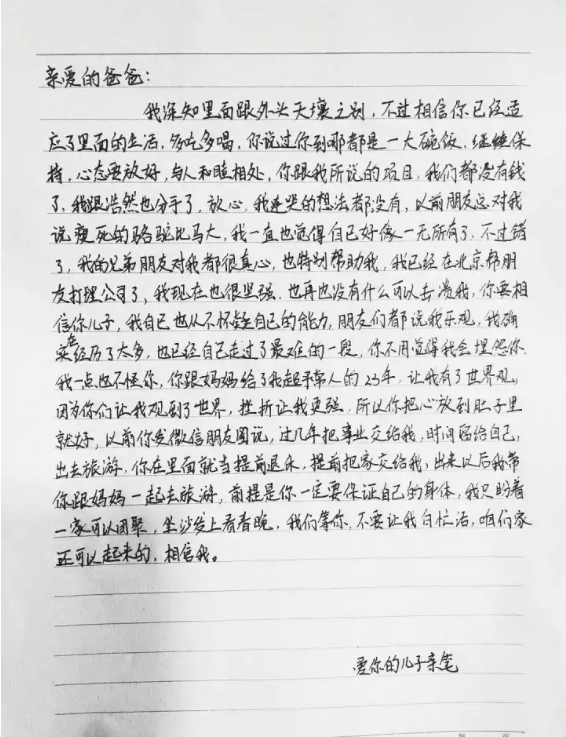 亲爱的爸爸:
我深知里面跟外头天壤之别,不过相信你已经适
应了里面的生活,多吃多喝,你说过你到哪都是一大碗饭,继续保
持,心态要放好,与人和睦相处,你跟我所说的项目,我们都没有钱
了,我跟浩然也分手了,放心,我连哭的想法都没有,以前朋友总对我
说瘦死的骆驼比马大,我一直也觉得自己好像一无所有了,不过错
了,我的兄弟朋友对我都很真心,也特别帮助我,我已经在北京帮朋
友打理公司了,我现在也很坚强,也再也没有什么可以击溃我,你要相
信你儿子,我自己也从不怀疑自己的能力,朋友们都说我乐观,我确
实经历了太多,也已经自己走过了最难的一段,你不用觉得我会埋怨你
我一点也不怪你,你跟妈妈给了我超乎常人的23年,让我有了世界观,
因为你们让我观到了世界,挫折让我更强,所以你把心放到肚子里
就好,以前你发微信朋友圈说,过几年把事业交给我,时间留给自己,
出去旅游,你在里面就当提前退休,提前把家交给我,出来以后我带
你跟妈妈一起去旅游,前提是你一定要保证自己的身体,我只盼着
一家可以团聚,坐沙发上看看晚,我们等你,不要让我白忙活,咱们家
还可以起来的,相信我。
爱你的儿子亲笔